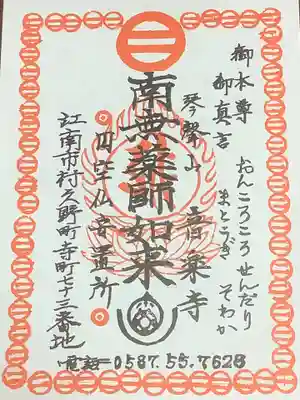 御本尊
御真言
おんころころせんだり
まとうぎ
そわか
琴聲山
音楽寺
南無薬師如来
円空仏安置所
江南市村久野町寺町七十三番地
電話＝0587.55.7628